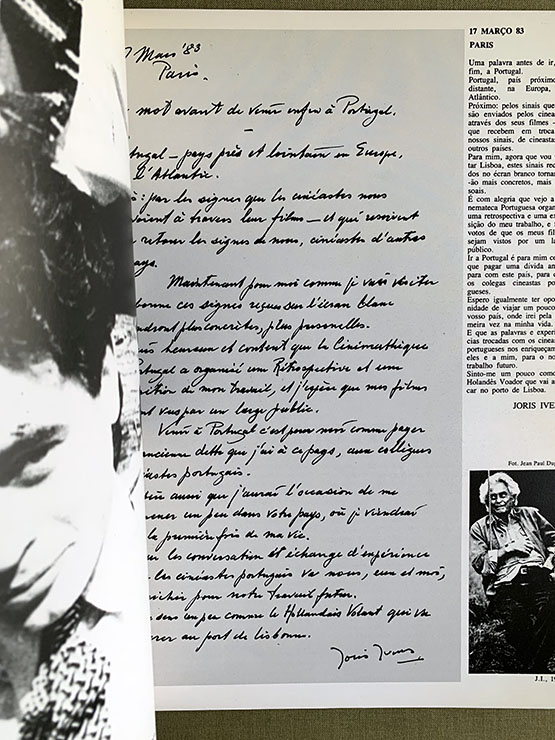 7 Mars '83
Paris.
mot avant de venir enfin à Portugal.
tugal – pays près et lointain en Europe,
l'Atlantic.
: par les signes que les cinéastes nous
voient à travers leur films – et qui reçoivent
retour les signes de nous, cinéastes d'autres
pays.
Maintenant pour moi comme je vais visiter
bonne ces signes reçues sur l'écran blanc
endront plus concrètes, plus personelles.
heureux et content que la Cinémathèque
rtugal a organisé une Rétrospective et une
sition de mon travail, et j'espère que mes films
t vus par un large public.
Venir à Portugal c'est pour moi comme payer
ancienne dette que j'ai à ce pays, aux collègues
éastes portugais.
aussi que j'aurai l'occasion de me
ener un peu dans votre pays, où je viendrai
la première fois de ma vie.
les conversation et échange d'expérience
les cinéastes portugais va nous, eux et moi,
richir pour notre travail futur.
sens un peu comme le Hollandais Volant qui va
rer au port de Lisbonne.
Joris Ivens
17 MARÇO 83
PARIS
Uma palavra antes de ir,
fim, a Portugal.
Portugal, país próximo
distante, na Europa,
Atlântico.
Próximo: pelos sinais que
são enviados pelos cinea
através dos seus filmes –
que recebem em troca
nossos sinais, de cineastas
outros países.
Para mim, agora que vou
tar Lisboa, estes sinais rec
dos no écran branco tornar
-ão mais concretos, mais
soais.
É com alegria que vejo a
nemateca Portuguesa organ
uma retrospectiva e uma ex
sição do meu trabalho, e f
votos de que os meus fil
sejam vistos por um la
público.
Ir a Portugal é para mim co
que pagar uma dívida an
para com este país, para c
os colegas cineastas po
gueses.
Espero igualmente ter opo
nidade de viajar um pouco
vosso país, onde irei pela
meira vez na minha vida.
E que as palavras e exper
cias trocadas com os cinea
portugueses nos enriqueçam
eles e a mim, para o no
trabalho futuro.
Sinto-me um pouco como
Holandês Voador que vai a
car no porto de Lisboa.
JORIS IVE
Fot. Jean Paul Du
J.I., 19